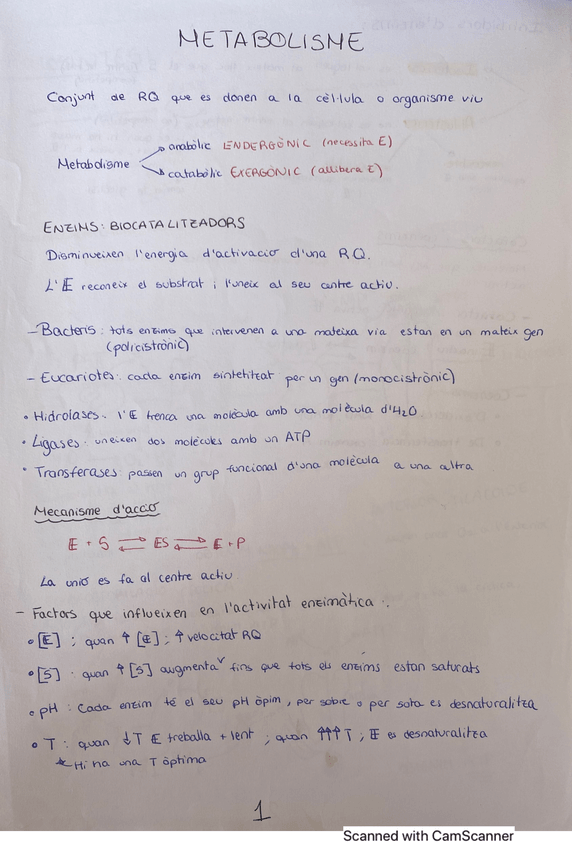 METABOLISME
Conjunt de RQ que es donen a la cèl·lula o organisme viu
anabòlic ENDERGÒNIC (necessita E)
Metabolisme
catabòlic EXERGÒNIC (allibera E)
ENZINS: BIOCATALITZADORS
Disminueixen l'energia d'activació d'una RQ.
L'E reconeix el substrat i l'uneix al seu centre actiu.
- Bacteris: tots enzims que intervenen a una mateixa via estan en un mateix gen
(policistrònic)
- Eucariotes: cada enzim sintetitzat per un gen (monocistrònic)
• Hidrolases. l'E trenca una molècula amb una molècula d'H2O
• Ligases: uneixen dos molècules amb un ATP
• Transferases: passen un grup funcional d'una molècula a una altra
Mecanisme d'acció
E + S ⇌ ES ⇌ E + P
La unió es fa al centre actiu
- Factors que influeixen en l'activitat enzimàtica:
• [E] ; quan ↑ [E] ; ↑ velocitat RQ
• [S] : quan ↑ [S] augmenta v fins que tots els enzims estan saturats
• pH : Cada enzim té el seu pH òpim, per sobre o per sota es desnaturalitza
• T : quan ↓T E treballa + lent ; quan ↑↑↑ T ; E es desnaturalitza
* Hi ha una T òptima
1
Scanned with CamScanner